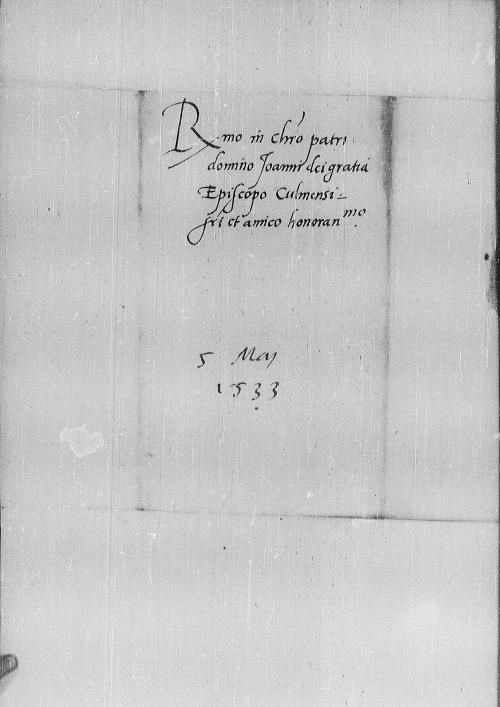 Rmo in chro patri
domino Joanni dei gratia
Episcopo Culmensi
fri et amico honoran^mo.
5 Maj
1533